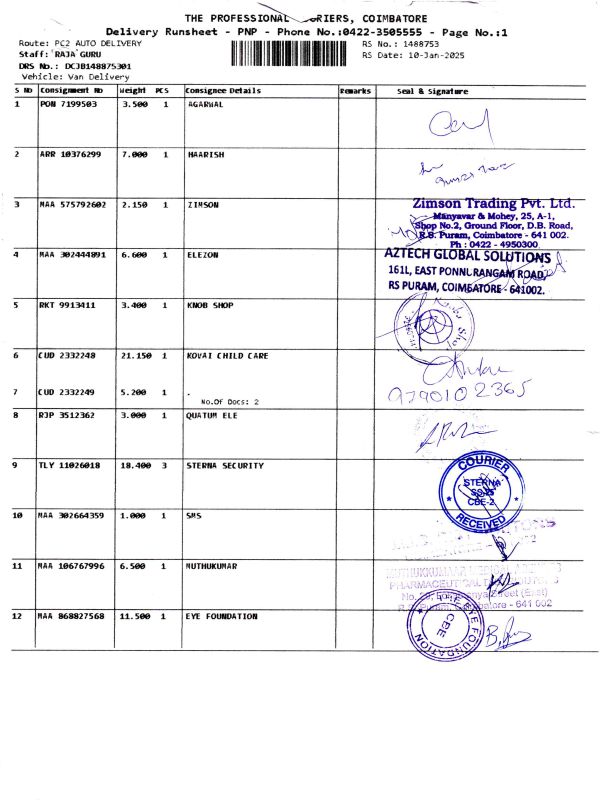 THE PROFESSIONAL COURIERS, COIMBATORE
Delivery Runsheet - PNP - Phone No.:0422-3505555 - Page No.:1
Route: PC2 AUTO DELIVERY
RS No.: 1488753
Staff: RAJA GURU
RS Date: 10-Jan-2025
DRS No.: DCJB148875301
Vehicle: Van Delivery
S No Consignment No Weight PCS Consignee Details Remarks Seal & Signature
1 PON 7199503 3.500 1 AGARWAL
2 ARR 10376299 7.000 1 HAARISH
3 MAA 575792602 2.150 1 ZIMSON
Zimson Trading Pvt. Ltd.
Manyavar & Mohey, 25, A-1,
Shop No.2, Ground Floor, D.B. Road,
R.S. Puram, Coimbatore - 641 002.
Ph : 0422 - 4950300
4 MAA 302444891 6.600 1 ELEZON
AZTECH GLOBAL SOLUTIONS
161L, EAST PONNURANGAM ROAD,
RS PURAM, COIMBATORE - 641002.
5 RKT 9913411 3.400 1 KNOB SHOP
6 CUD 2332248 21.150 1 KOVAI CHILD CARE
7 CUD 2332249 5.200 1 .
No.Of Docs: 2
9790102365
8 RJP 3512362 3.000 1 QUATUM ELE
9 TLY 11026018 18.400 3 STERNA SECURITY
COURIER
STERNA
CBE-2
RECEIVED
10 MAA 302664359 1.000 1 SMS
11 MAA 106767996 6.500 1 MUTHUKUMAR
PHARMACEUTICAL
R.S. Puram, Coimbatore - 641 002
12 MAA 868827568 11.500 1 EYE FOUNDATION
EYE FOUNDATION
CBE